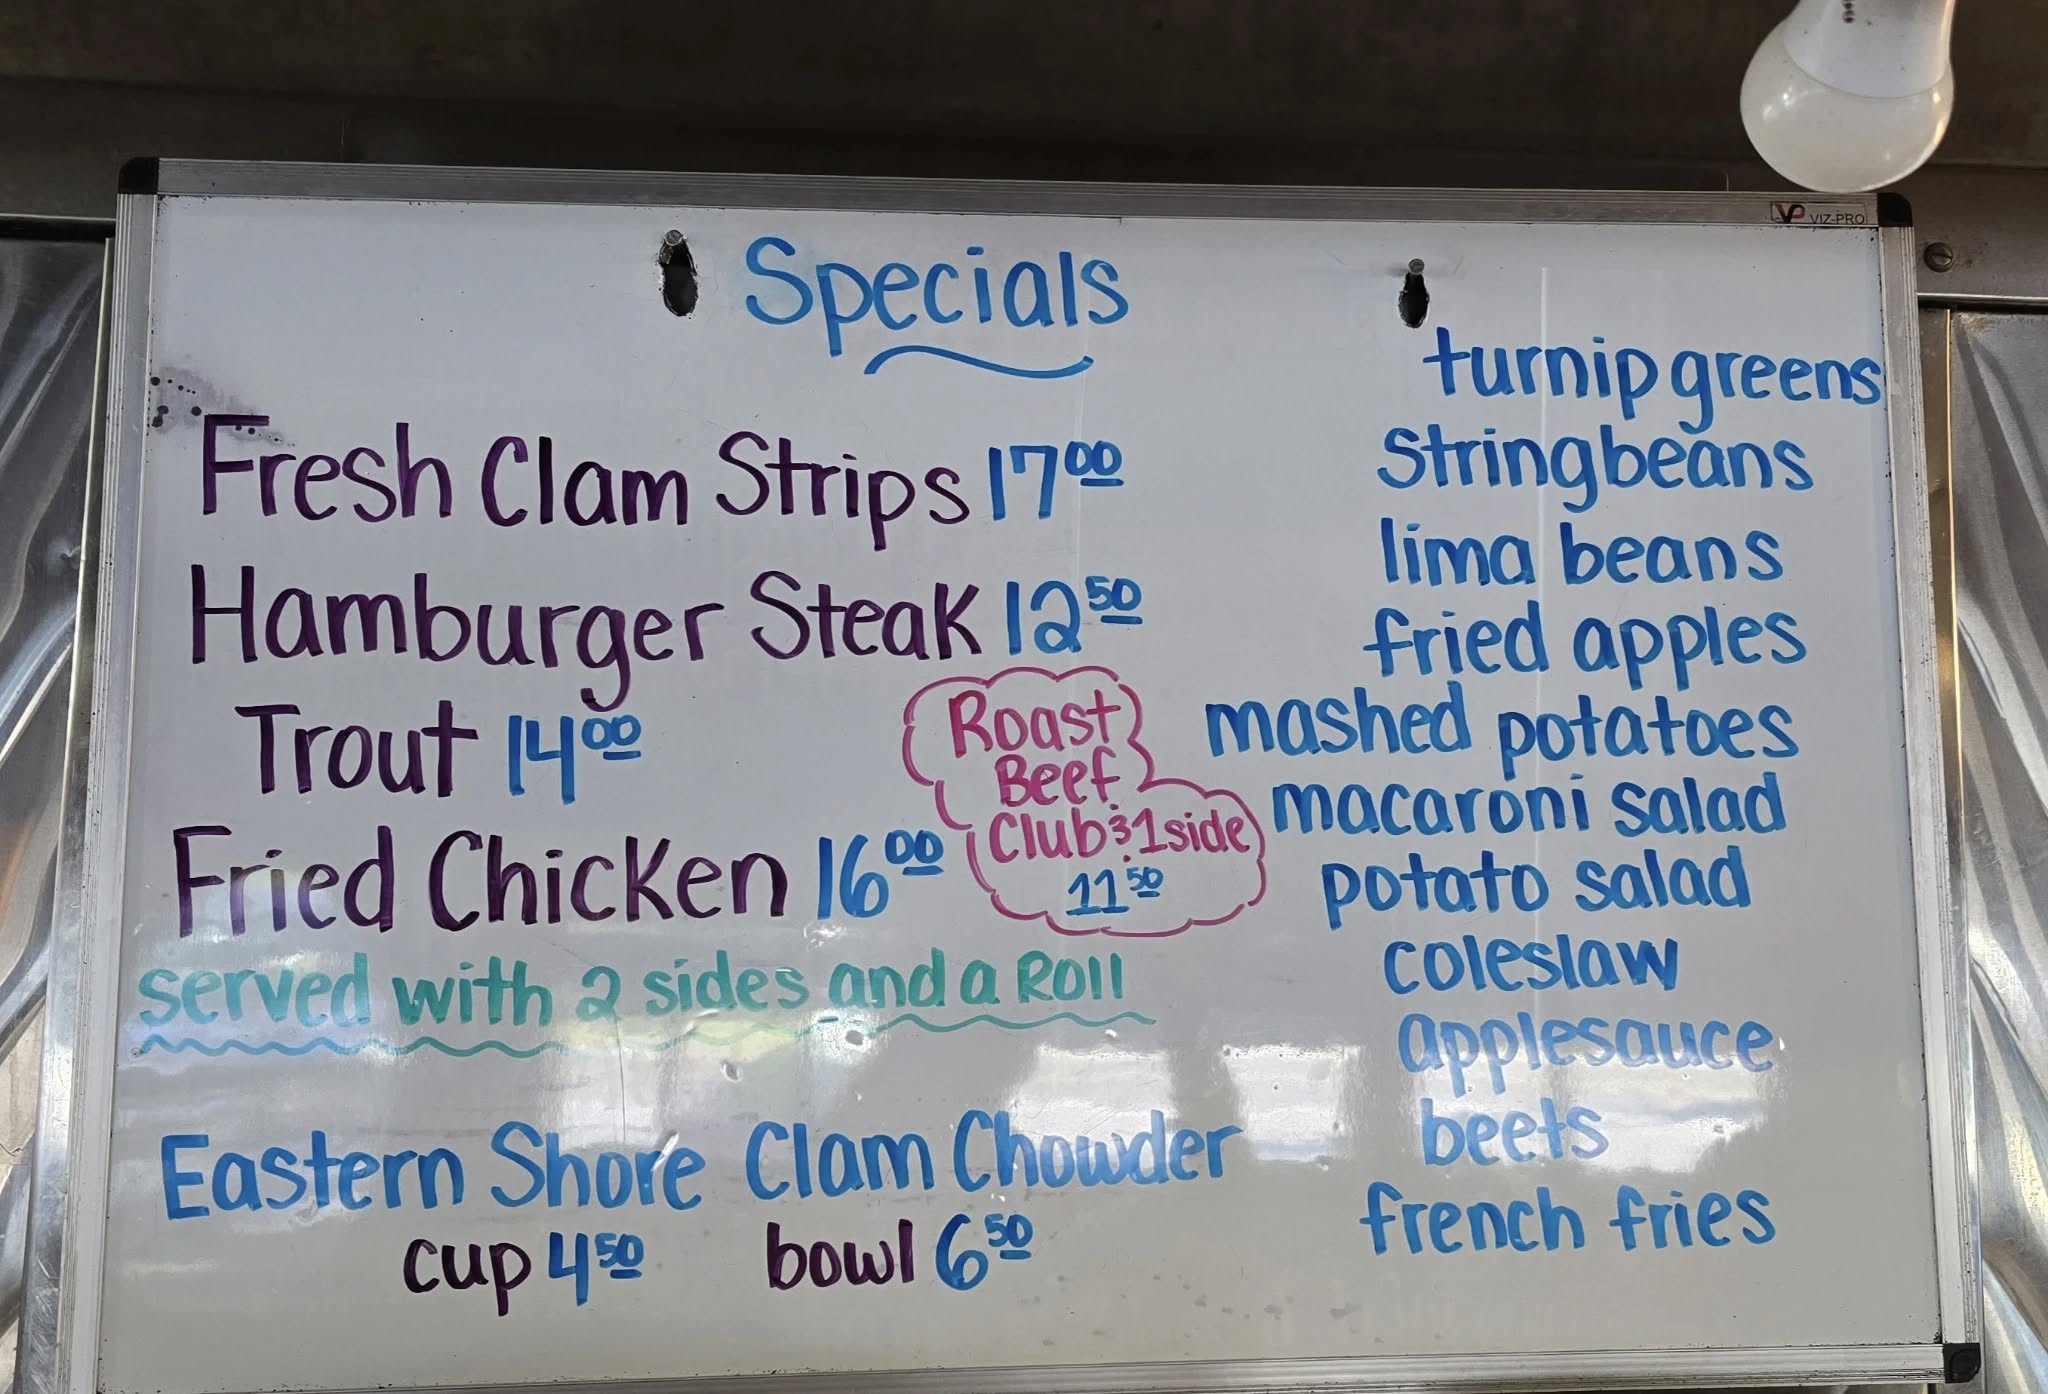 VP VIZ-PRO
Specials
Fresh Clam Strips 17 00
Hamburger Steak 12 50
Trout 14 00
Fried Chicken 16 00
served with 2 sides and a Roll
Roast
Beef
Club & 1 side
11 50
Eastern Shore Clam Chowder
cup 4 50 bowl 6 50
turnip greens
Stringbeans
lima beans
fried apples
mashed potatoes
macaroni salad
potato salad
coleslaw
applesauce
beets
french fries